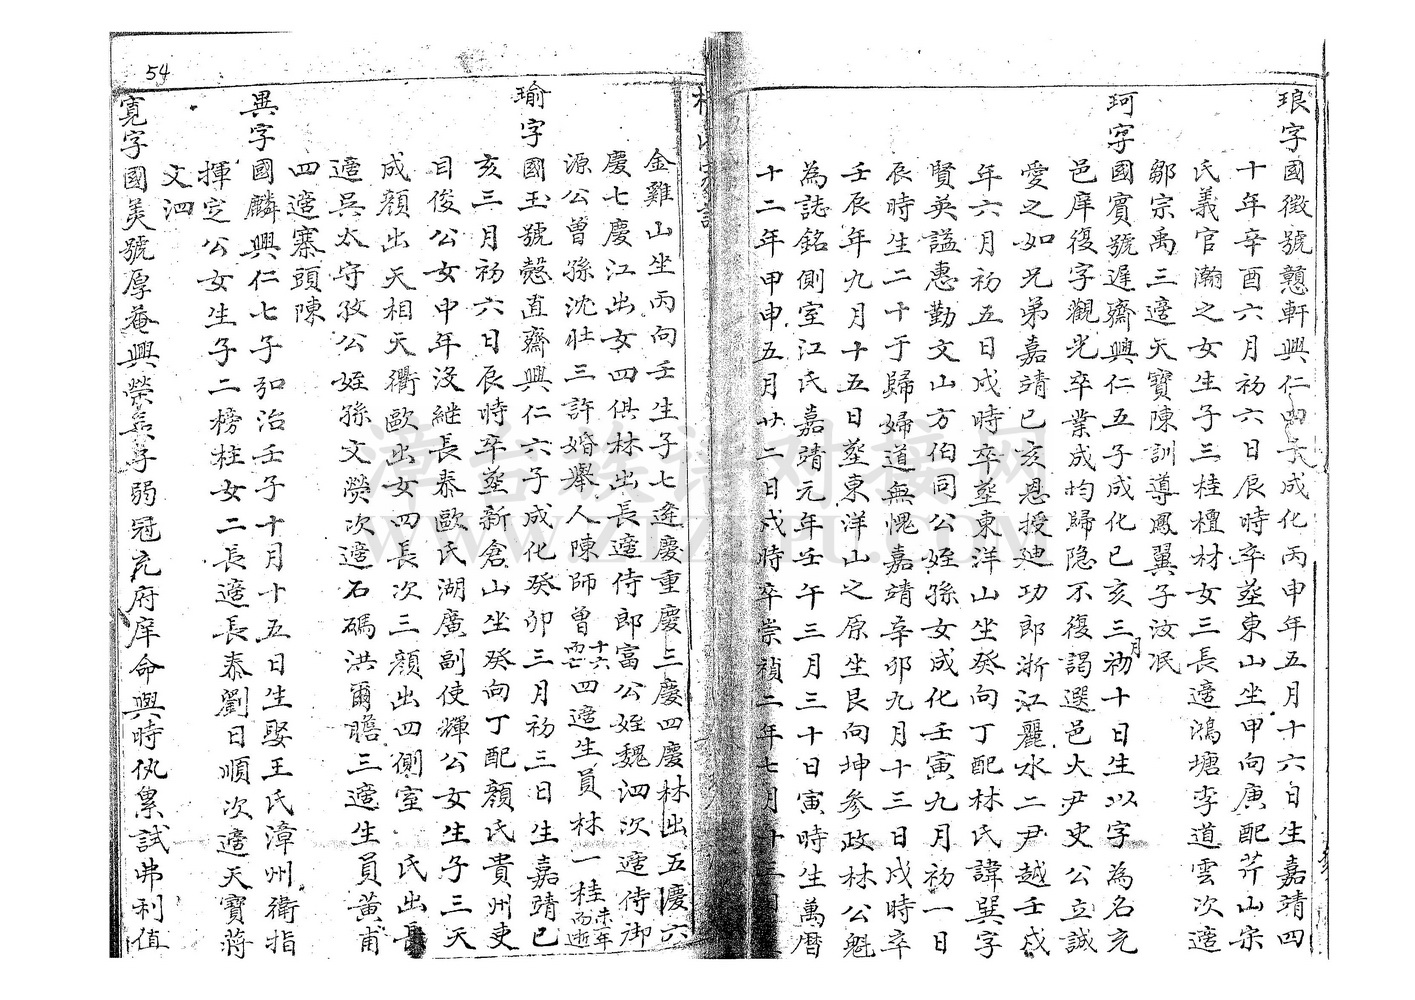 琅字國徵號戇軒興仁四子成化丙申年五月十六日生嘉靖四
十年辛酉六月初六日辰時卒塟東山坐甲向庚配芹山宗
氏義官瀚之女生子三桂檀材女三長適鴻塘李道雲次適
鄒宗禹三適天寶陳訓導鳳翼子汝泯
珂字國賓號遲齋興仁五子成化已亥三月初十日生以字為名充
邑庠復字觀光卒業成均歸隐不復謁選邑大尹史公立誠
愛之如兄弟嘉靖已亥恩授廸功郎浙江麗水二尹越壬戌
年六月初五日戌時卒塟東洋山坐癸向丁配林氏諱巽字
賢英謚惠勤文山方伯同公姪孫女成化壬寅九月初一日
辰時生二十于歸婦道無愧嘉靖辛卯九月十三日戌時卒
壬辰年九月十五日塟東洋山之原生艮向坤參政林公魁
為誌銘側室江氏嘉靖元年壬午三月三十日寅時生萬曆
十二年甲申五月廿二日戌時卒崇禎二年七月十三
金雞山坐丙向壬生子七逢慶重慶三慶四慶林出五慶六
慶七慶江出女四俱林出長適侍郎富公姪魏泗次適侍御
源公曾孫沈壯三許婚舉人陳師曾十六而亡四適生員林一桂未一年而逝
瑜字國玉號懿直齋興仁六子成化癸卯三月初三日生嘉靖已
亥三月初六日辰時卒塟新倉山坐癸向丁配顏氏貴州吏
目俊公女中年沒継長泰歐氏湖廣副使輝公女生子三天
成顏出天相天衢歐出女四長次三顏出四側室 氏出長
適吳太守孜公姪孫文熒次適石碼洪爾瞻三適生員黃甫
四適寨頭陳
異字國麟興仁七子弘治壬子十月十五日生娶王氏漳州衛指
揮定公女生子二榜柱女二長適長泰劉日順次適天寶蔣
文泗
寬字國美號厚菴興榮長子弱冠充府庠命與時仇累試弗利值
54